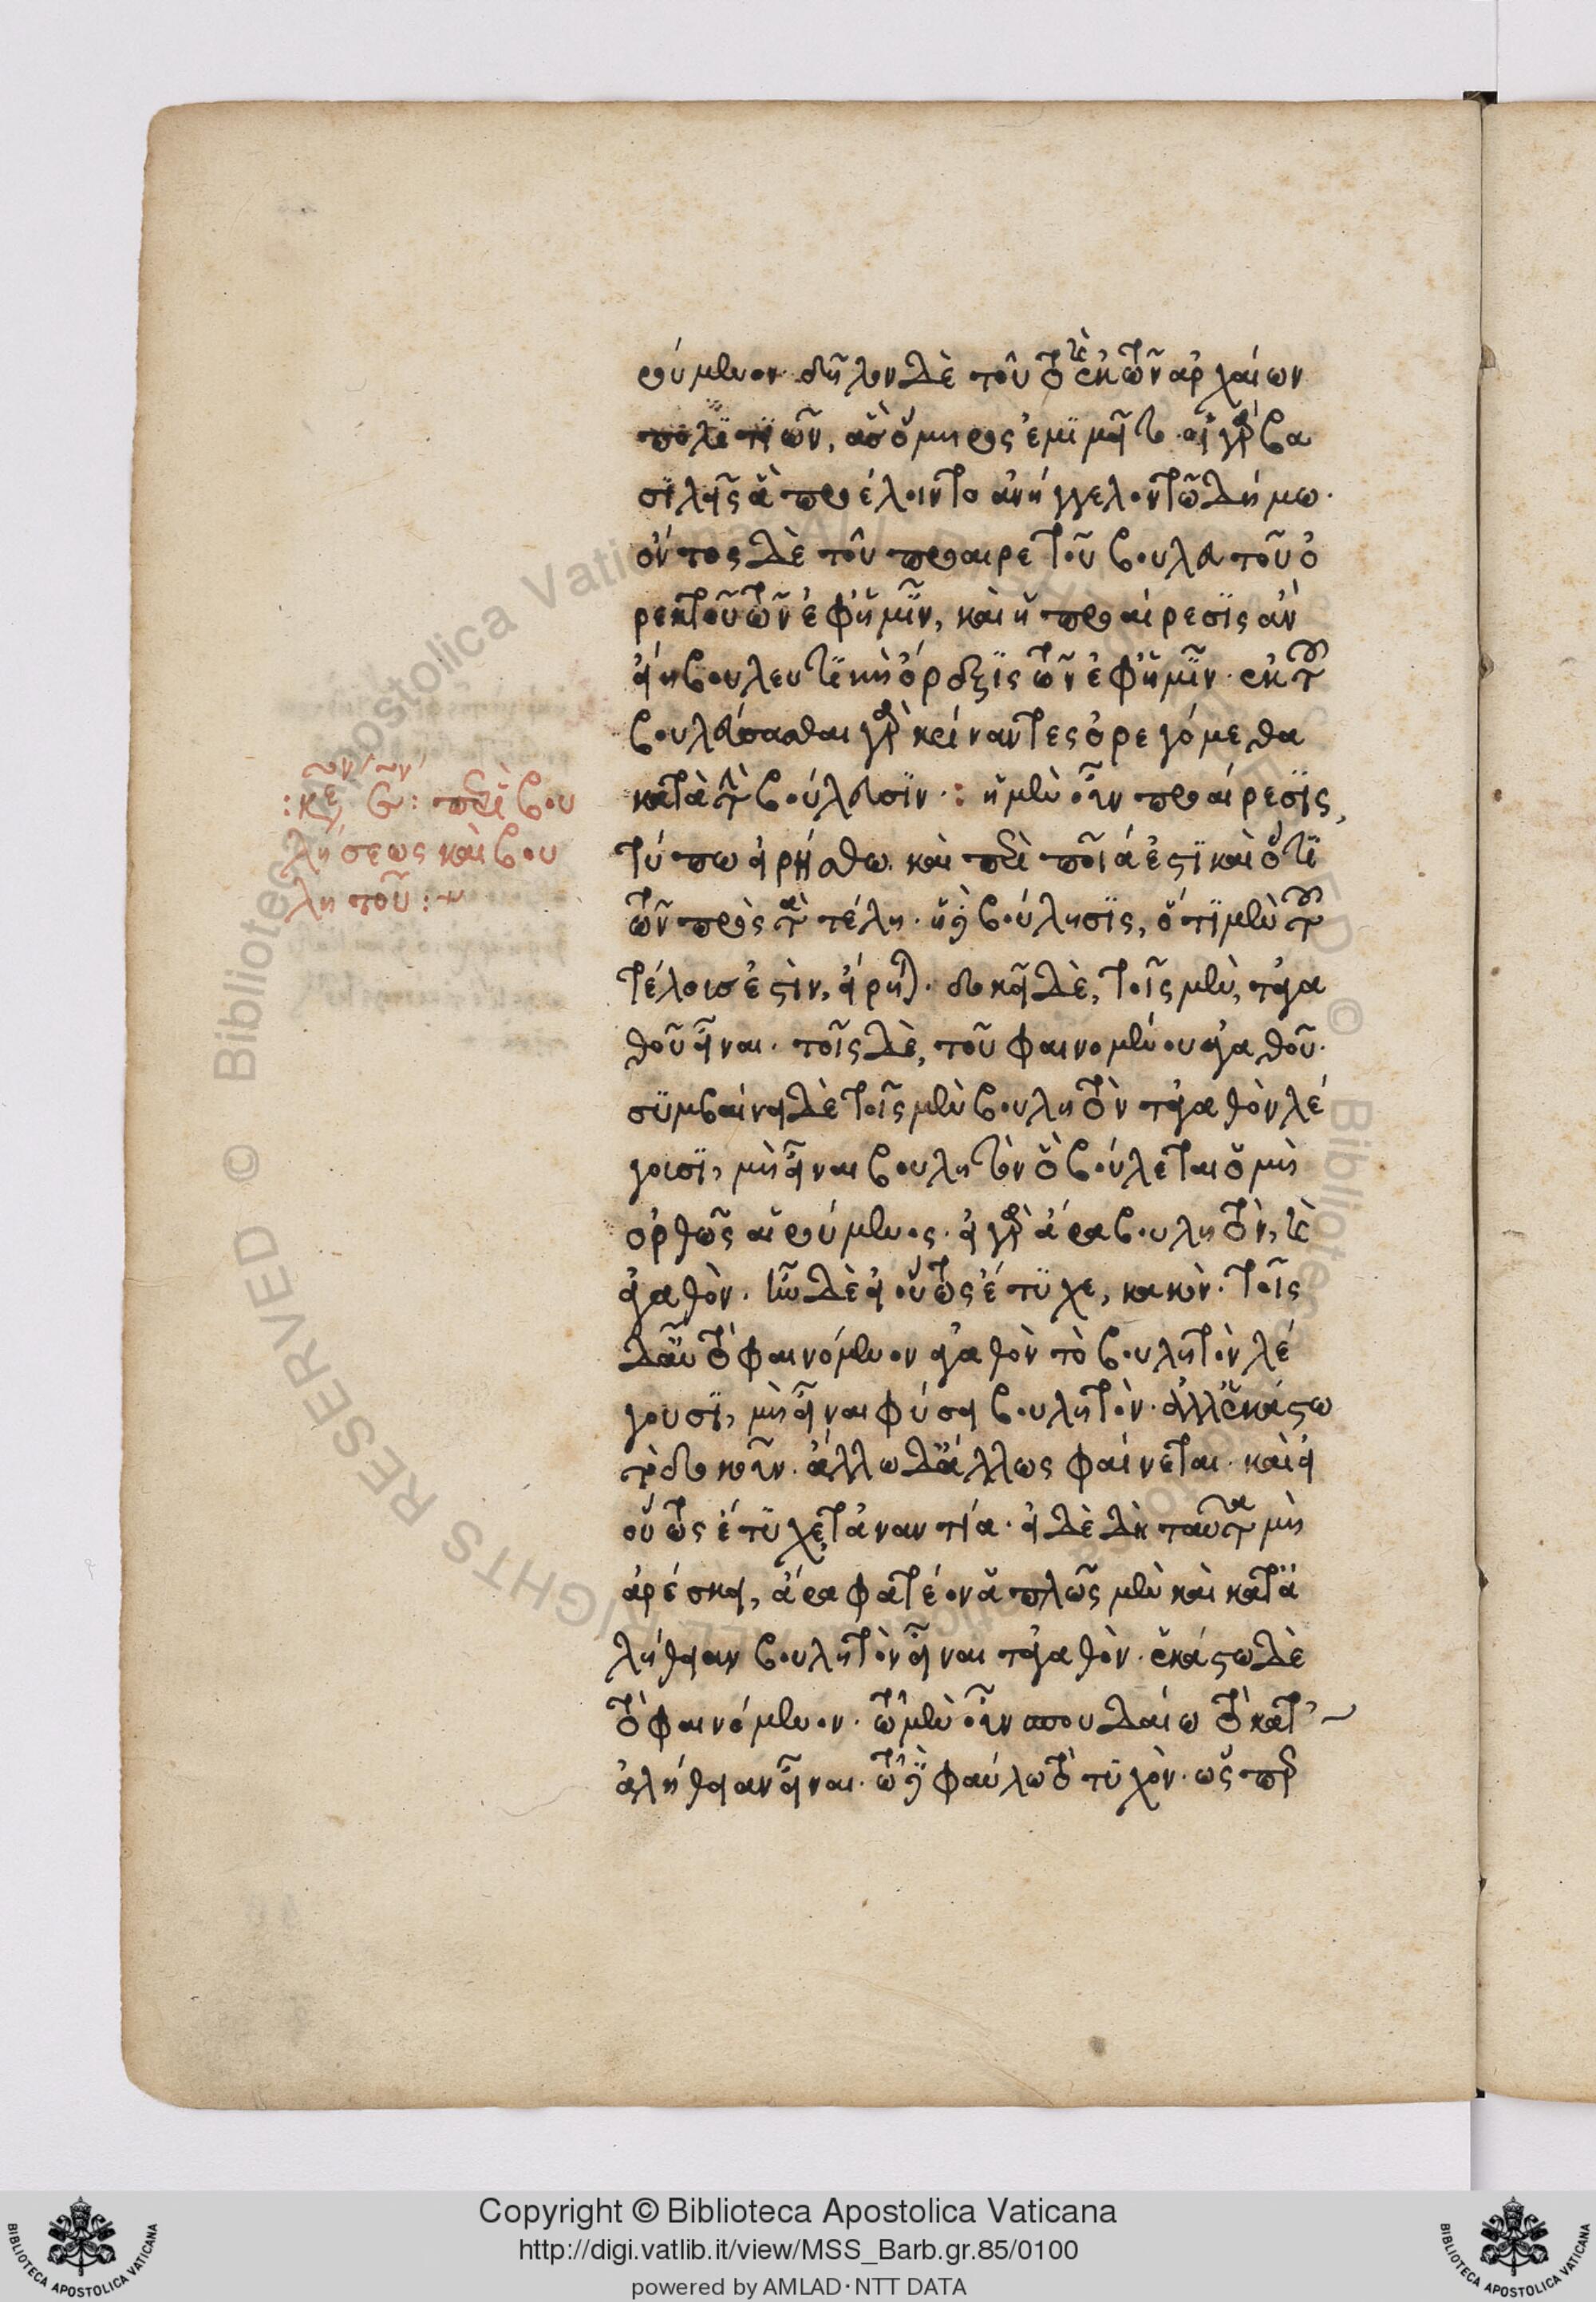 ρούμενον. δῆλον δὲ τοῦτο καὶ ἐκ τῶν ἀρχαίων
πολιτειῶν, ἃς ὅμηρος ἐμιμεῖτο. οἱ γὰρ βα
σιλεῖς ἃ προέλοιντο ἀνήγγελον τῶ δήμω.
ὄντος δὲ τοῦ προαιρετοῦ βουλευτοῦ ὀ
ρεκτοῦ τῶν ἐφ' ἡμῖν, καὶ ἡ προαίρεσις ἂν
εἴη βουλευτικὴ ὄρεξις τῶν ἐφ' ἡμῖν. ἐκ τοῦ
βουλεύσασθαι γὰρ κρίναντες ὀρεγόμεθα
κατὰ τὴν βούλευσιν. : ἡ μὲν οὖν προαίρεσις,
τύπω εἰρήσθω. καὶ περὶ ποῖά ἐστι καὶ ὅτι
τῶν πρὸς τὰ τέλη. ἡ δὲ βούλησις, ὅτι μὲν τοῦ
τέλους ἐστὶν, εἴρηται. δοκεῖ δὲ, τοῖς μὲν, τἀγα
θοῦ εἶναι. τοῖς δὲ, τοῦ φαινομένου ἀγαθοῦ.
συμβαίνει δὲ τοῖς μὲν βουλητὸν τἀγαθὸν λέ
γουσι, μὴ εἶναι βουλητὸν ὃ βούλεται ὁ μὴ
ὀρθῶς αἱρούμενος. εἰ γὰρ ἔσται βουλητὸν, καὶ
ἀγαθόν. ἦν δὲ εἰ οὕτως ἔτυχε, κακὸν. τοῖς
δ' αὖ τὸ φαινόμενον ἀγαθὸν τὸ βουλητὸν λέ
γουσι, μὴ εἶναι φύσει βουλητὸν. ἀλλ' ἑκάστω
τὸ δοκοῦν. ἄλλω δ' ἄλλως φαίνεται. καὶ εἰ
οὕτως ἔτυχε, τἀναντία. εἰ δὲ δὴ ταῦτα μὴ
ἀρέσκει, ἆρα φατέον ἁπλῶς μὲν καὶ κατὰ
λήθειαν βουλητὸν εἶναι τἀγαθὸν. ἑκάστω δὲ
τὸ φαινόμενον. τῶ μὲν οὖν σπουδαίω τὸ κατ'
ἀλήθειαν εἶναι. τῶ δὲ φαύλω τὸ τυχὸν. ὥσπερ
: κεν ϛν : περὶ βου
λήσεως καὶ βου
λητοῦ :
Copyright © Biblioteca Apostolica Vaticana
http://digi.vatlib.it/view/MSS_Barb.gr.85/0100
powered by AMLAD·NTT DATA